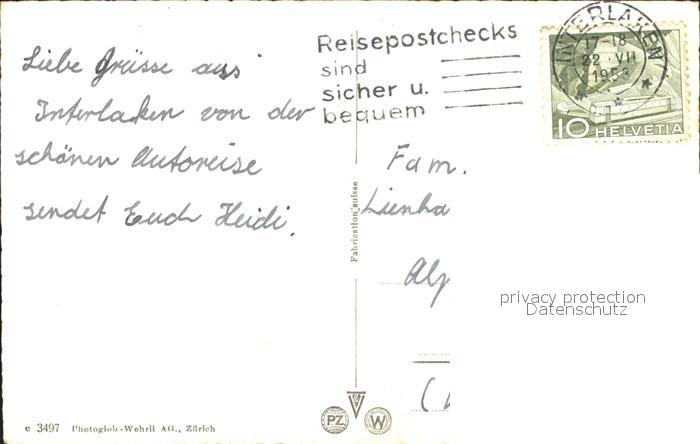 Liebe Grüsse aus
Interlaken von der
schönen Autoreise
sendet Euch Heidi.
Reisepostchecks
sind
sicher u.
bequem
INTERLAKEN
17-18
22·VII
1953
10 HELVETIA
Fam.
Lienha
Alp
Fabrication suisse
privacy protection
Datenschutz
PZ
W
e 3497 Photoglob-Wehrli AG., Zürich